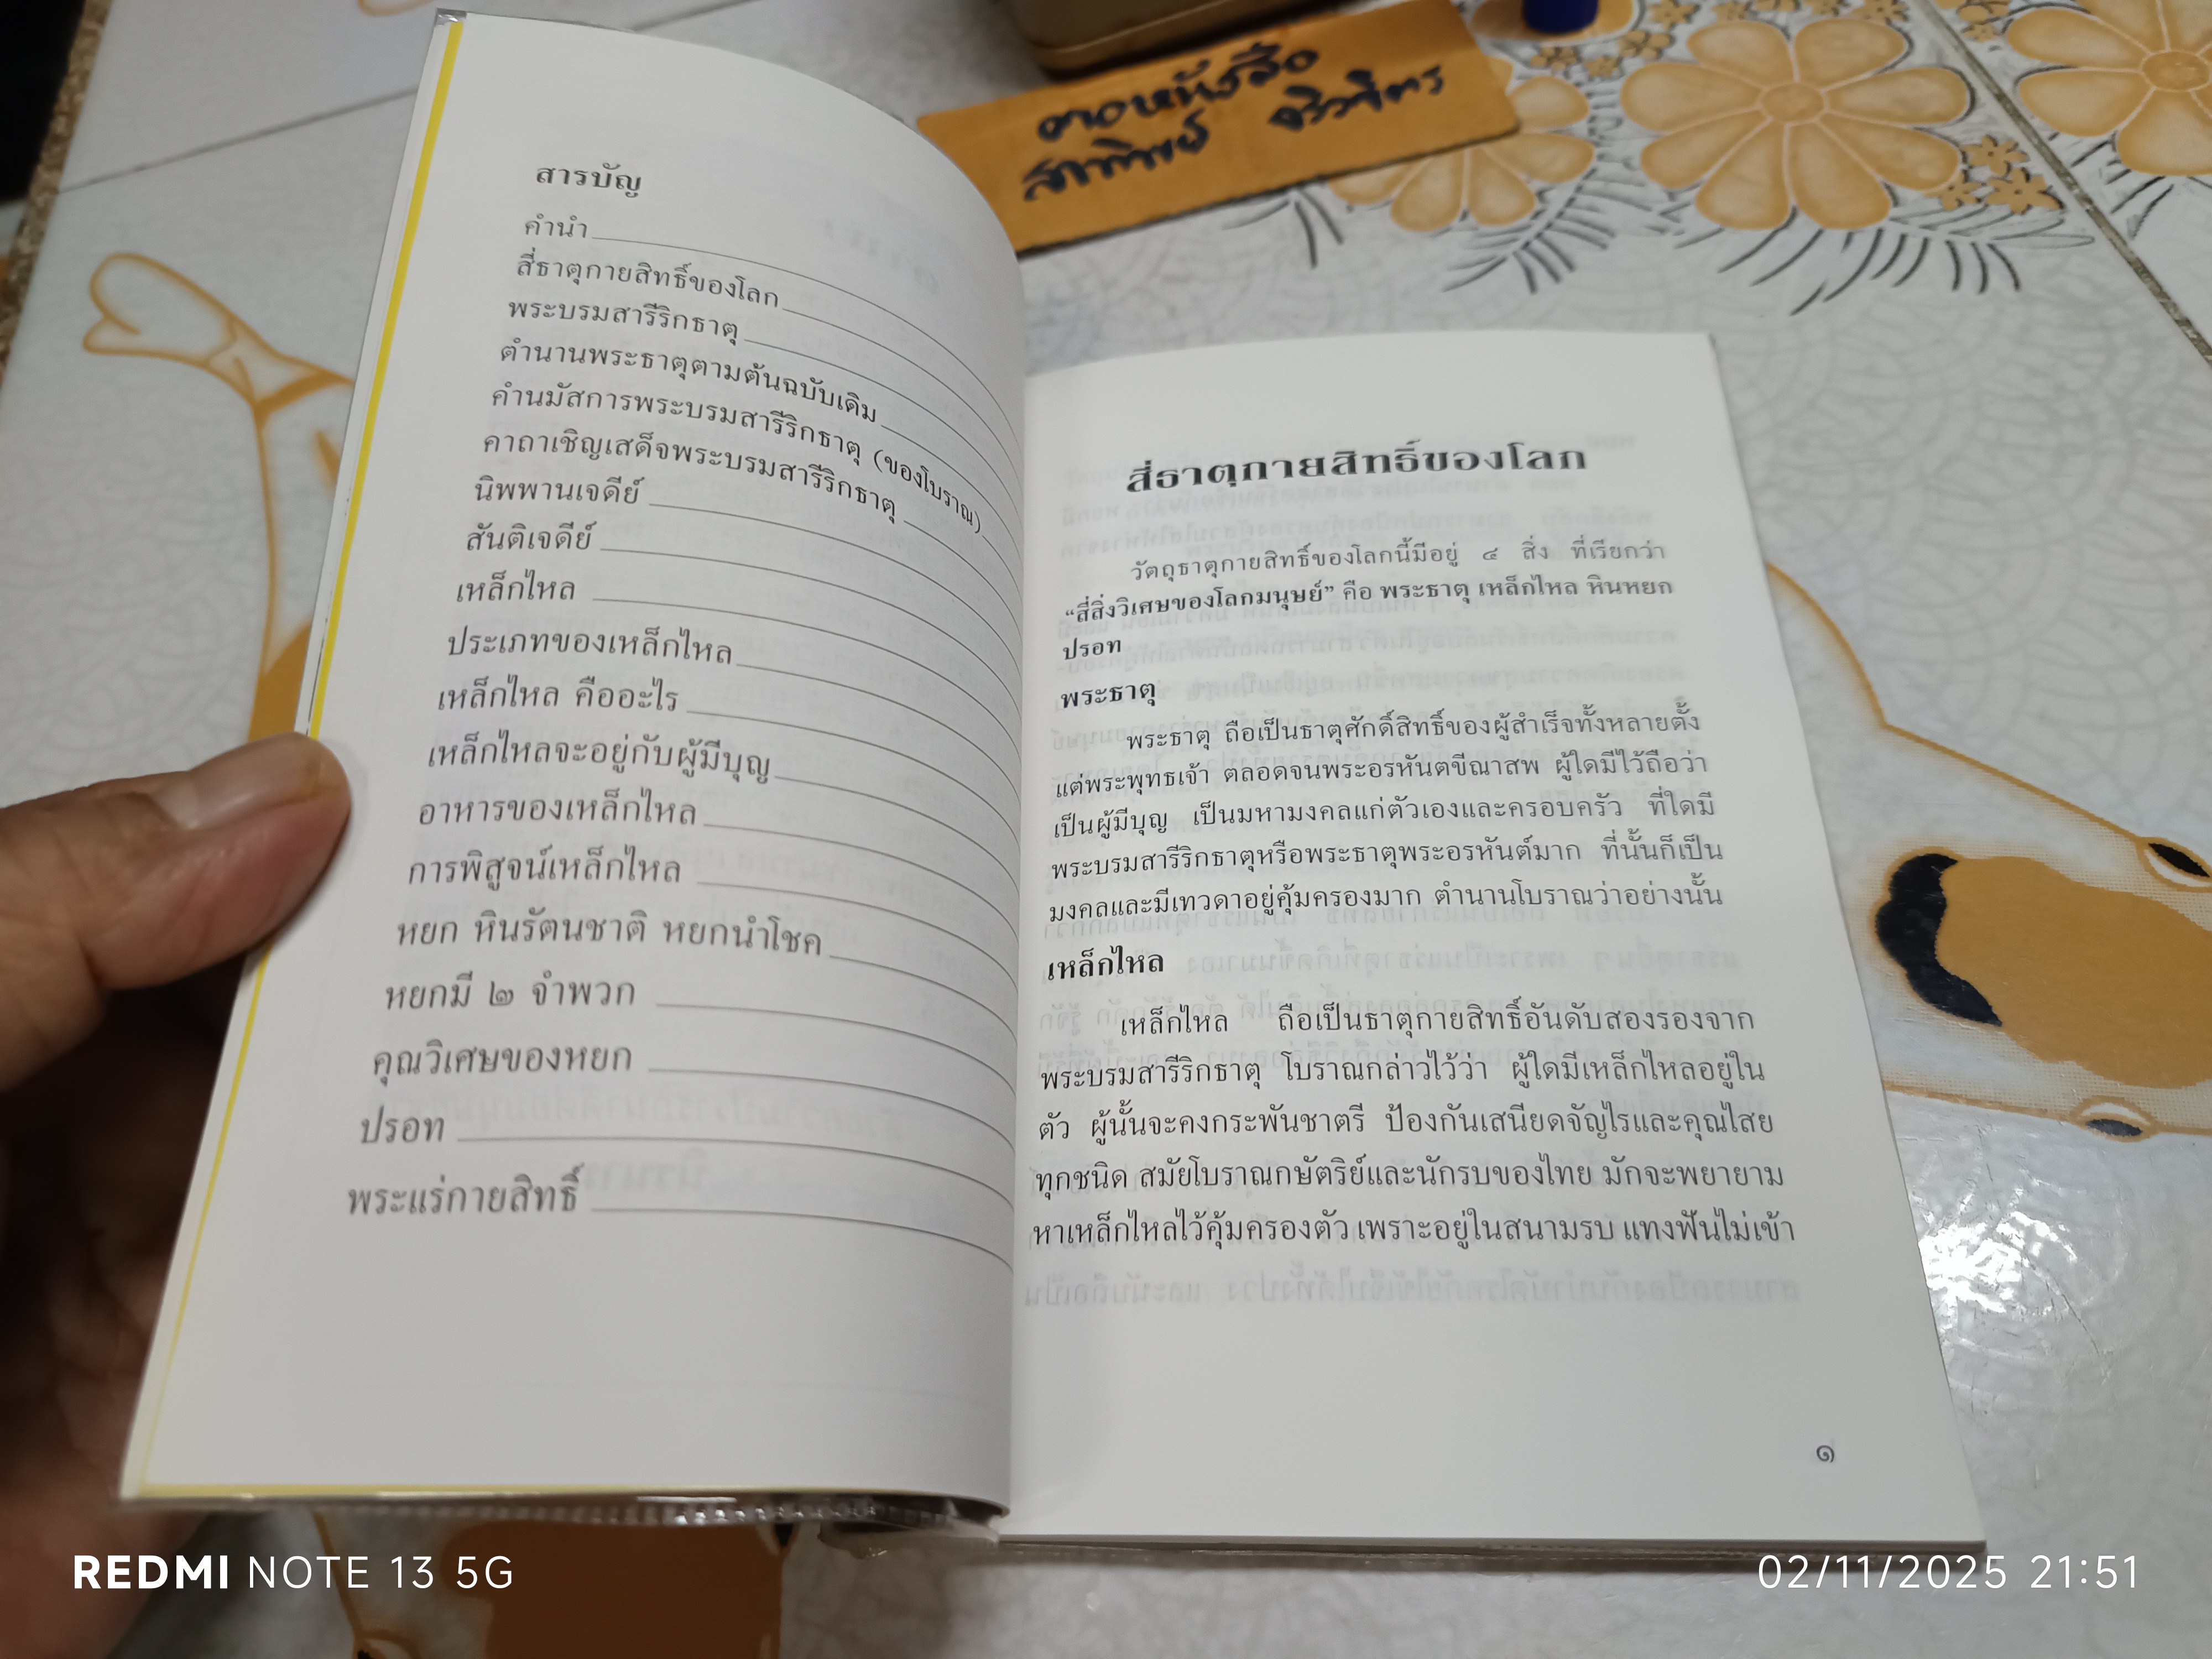 ตอหนังสือ
สารบัญ
คำนำ
สี่ธาตุกายสิทธิ์ของโลก
พระบรมสารีริกธาตุ
ตำนานพระธาตุตามต้นฉบับเดิม
คำนมัสการพระบรมสารีริกธาตุ (ของโบราณ)
คาถาเชิญเสด็จพระบรมสารีริกธาตุ
นิพพานเจดีย์
สันติเจดีย์
เหล็กไหล
ประเภทของเหล็กไหล
เหล็กไหล คืออะไร
เหล็กไหลจะอยู่กับผู้มีบุญ
อาหารของเหล็กไหล
การพิสูจน์เหล็กไหล
หยก หินรัตนชาติ หยกนำโชค
หยกมี ๒ จำพวก
คุณวิเศษของหยก
ปรอท
พระแร่กายสิทธิ์
สี่ธาตุกายสิทธิ์ของโลก
วัตถุธาตุกายสิทธิ์ของโลกนี้มีอยู่ ๔ สิ่ง ที่เรียกว่า
“สี่สิ่งวิเศษของโลกมนุษย์” คือ พระธาตุ เหล็กไหล หินหยก
ปรอท
พระธาตุ
พระธาตุ ถือเป็นธาตุศักดิ์สิทธิ์ของผู้สำเร็จทั้งหลายตั้ง
แต่พระพุทธเจ้า ตลอดจนพระอรหันตขีณาสพ ผู้ใดมีไว้ถือว่า
เป็นผู้มีบุญ เป็นมหามงคลแก่ตัวเองและครอบครัว ที่ใดมี
พระบรมสารีริกธาตุหรือพระธาตุพระอรหันต์มาก ที่นั้นก็เป็น
มงคลและมีเทวดาอยู่คุ้มครองมาก ตำนานโบราณว่าอย่างนั้น
เหล็กไหล
เหล็กไหล ถือเป็นธาตุกายสิทธิ์อันดับสองรองจาก
พระบรมสารีริกธาตุ โบราณกล่าวไว้ว่า ผู้ใดมีเหล็กไหลอยู่ใน
ตัว ผู้นั้นจะคงกระพันชาตรี ป้องกันเสนียดจัญไรและคุณไสย
ทุกชนิด สมัยโบราณกษัตริย์และนักรบของไทย มักจะพยายาม
หาเหล็กไหลไว้คุ้มครองตัว เพราะอยู่ในสนามรบ แทงฟันไม่เข้า
๑
REDMI NOTE 13 5G
02/11/2025 21:51